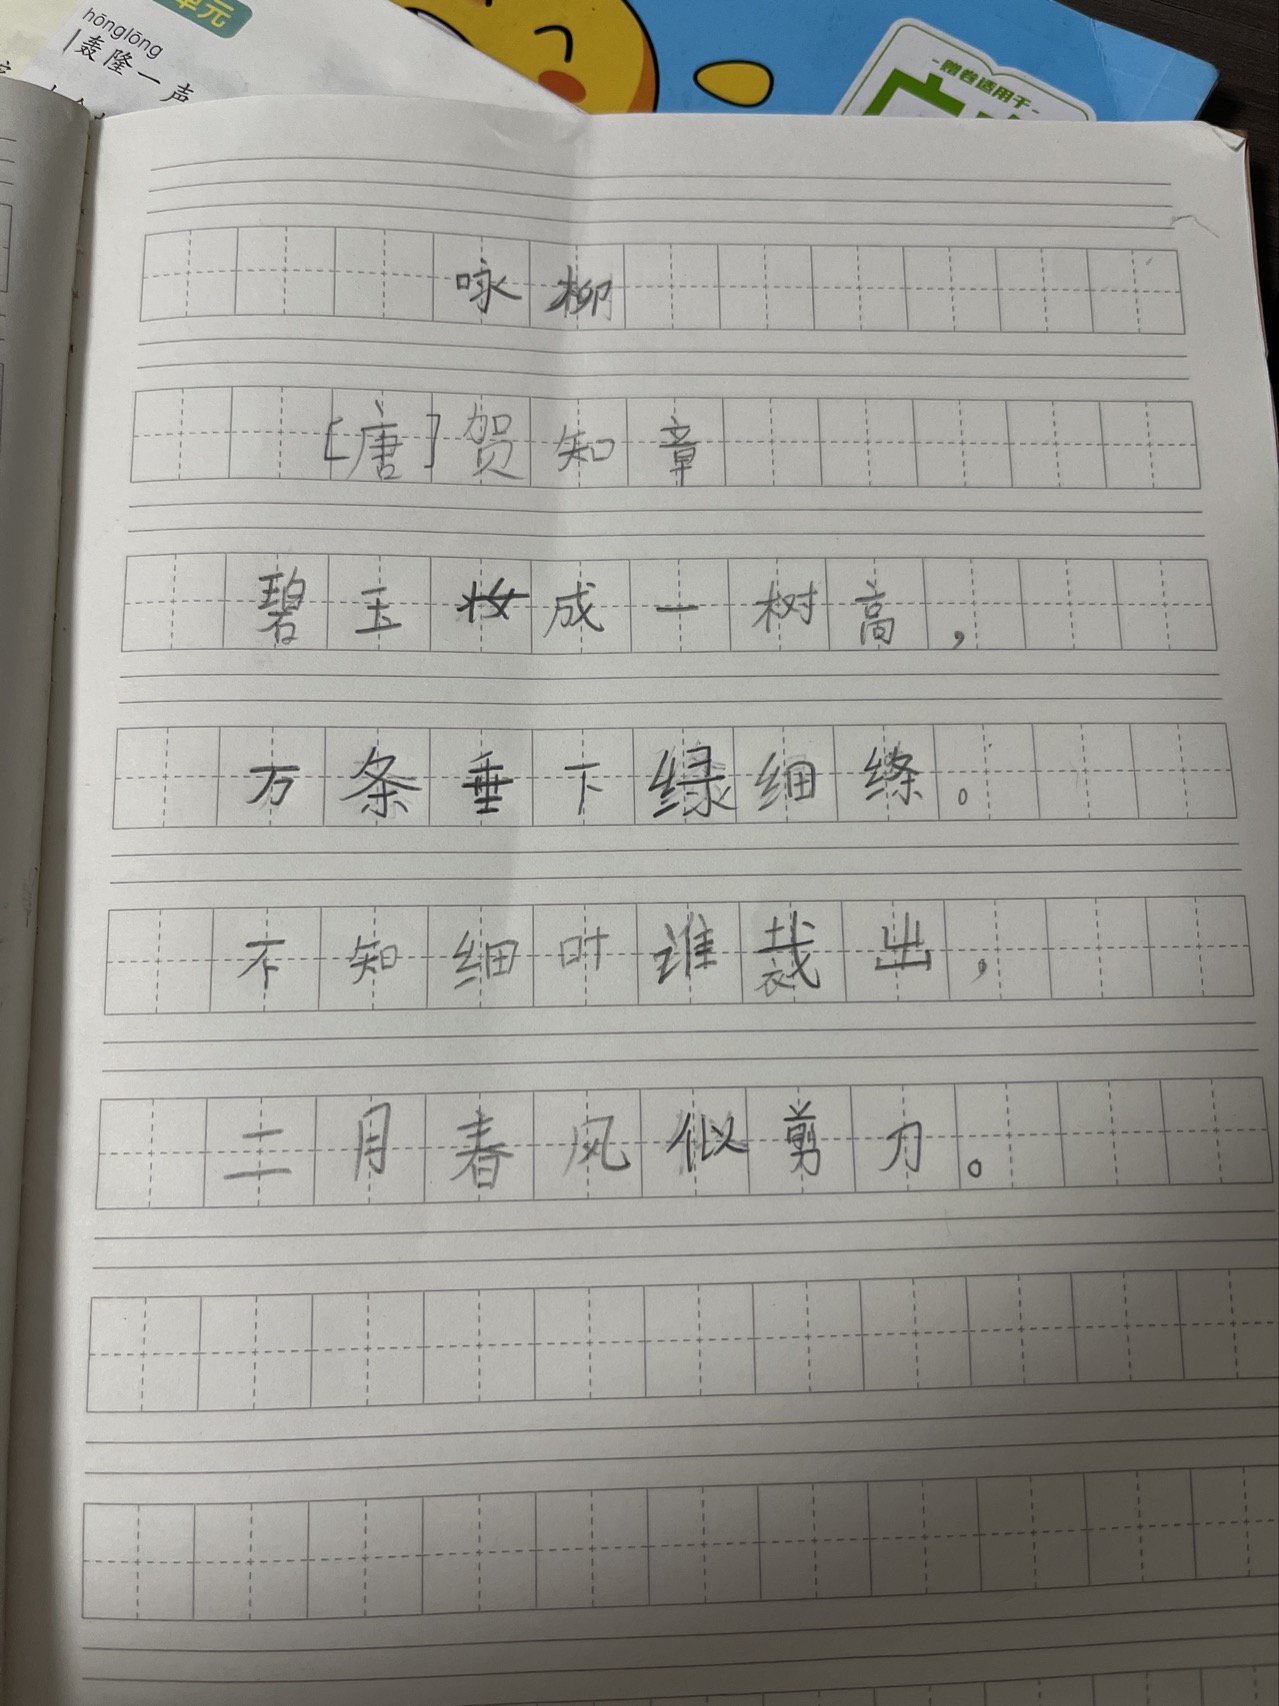 单元
hōnglōng
轰隆一声
赠卷适用于
咏柳
[唐]贺知章
碧玉妆成一树高，
万条垂下绿细绦。
不知细叶谁裁出，
二月春风似剪刀。